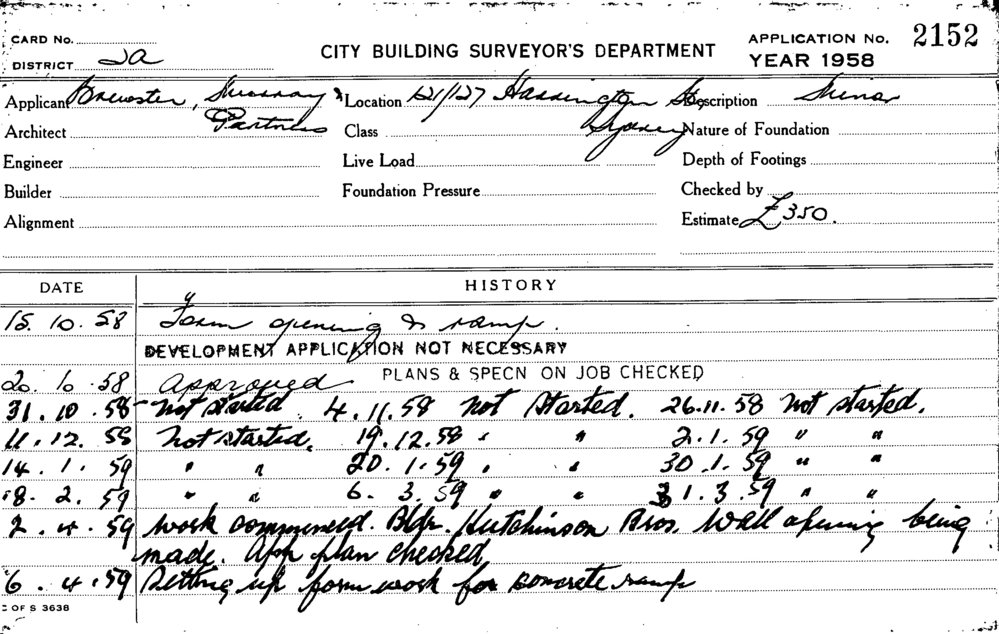 CARD No.
DISTRICT 2a
CITY BUILDING SURVEYOR'S DEPARTMENT
APPLICATION No. 2152
YEAR 1958
Applicant Brewster, Murray & Location 121/127 Harrington St, Description Minor
Architect Partners Class Sydney Nature of Foundation
Engineer Live Load Depth of Footings
Builder Foundation Pressure Checked by
Alignment Estimate £350.
DATE HISTORY
15.10.58 Form opening & ramp.
DEVELOPMENT APPLICATION NOT NECESSARY
20.10.58 Approved PLANS & SPECN ON JOB CHECKED
31.10.58 not started 4.11.58 not started. 26.11.58 not started.
11.12.58 not started. 19.12.58 " " 2.1.59 " "
14.1.59 " " 20.1.59 " " 30.1.59 " "
18.2.59 " " 6.3.59 " " 31.3.59 " "
2.4.59 work commenced. Bldr. Hutchinson Bros. Wall opening being
made. App plan checked
6.4.59 Setting up form work for concrete ramp
OF S 3638